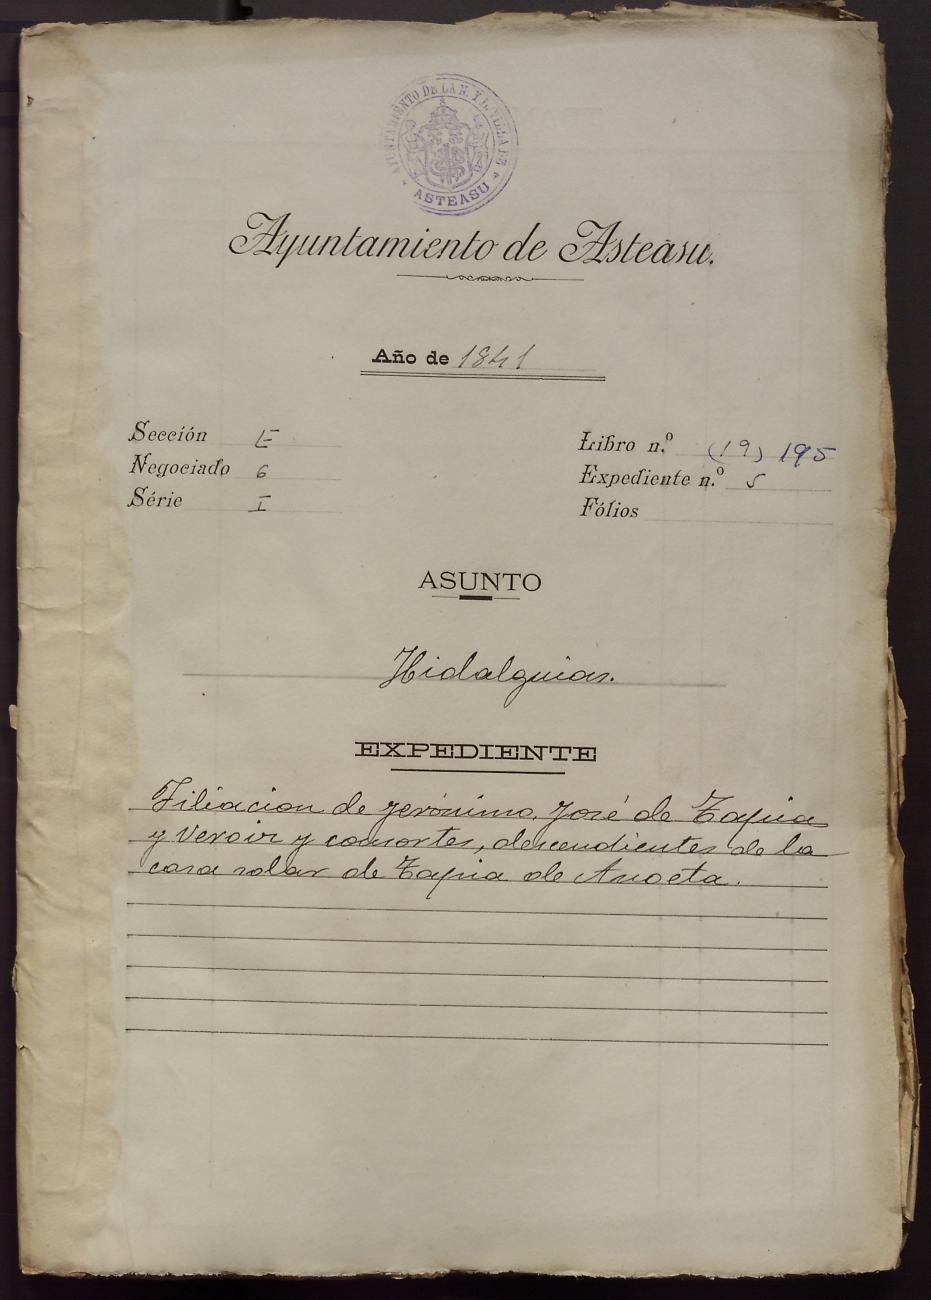 AYUNTAMIENTO DE LA N. Y L. VILLA DE
ASTEASU
Ayuntamiento de Asteasu.
Año de 1841
Sección E
Negociado 6
Série I
Libro n.º (19) 195
Expediente n.º 5
Fólios
ASUNTO
Hidalguias.
EXPEDIENTE
Filiacion de Jerónimo José de Zapia
y Veroiz y consortes, descendientes de la
casa solar de Zapia de Anoeta.